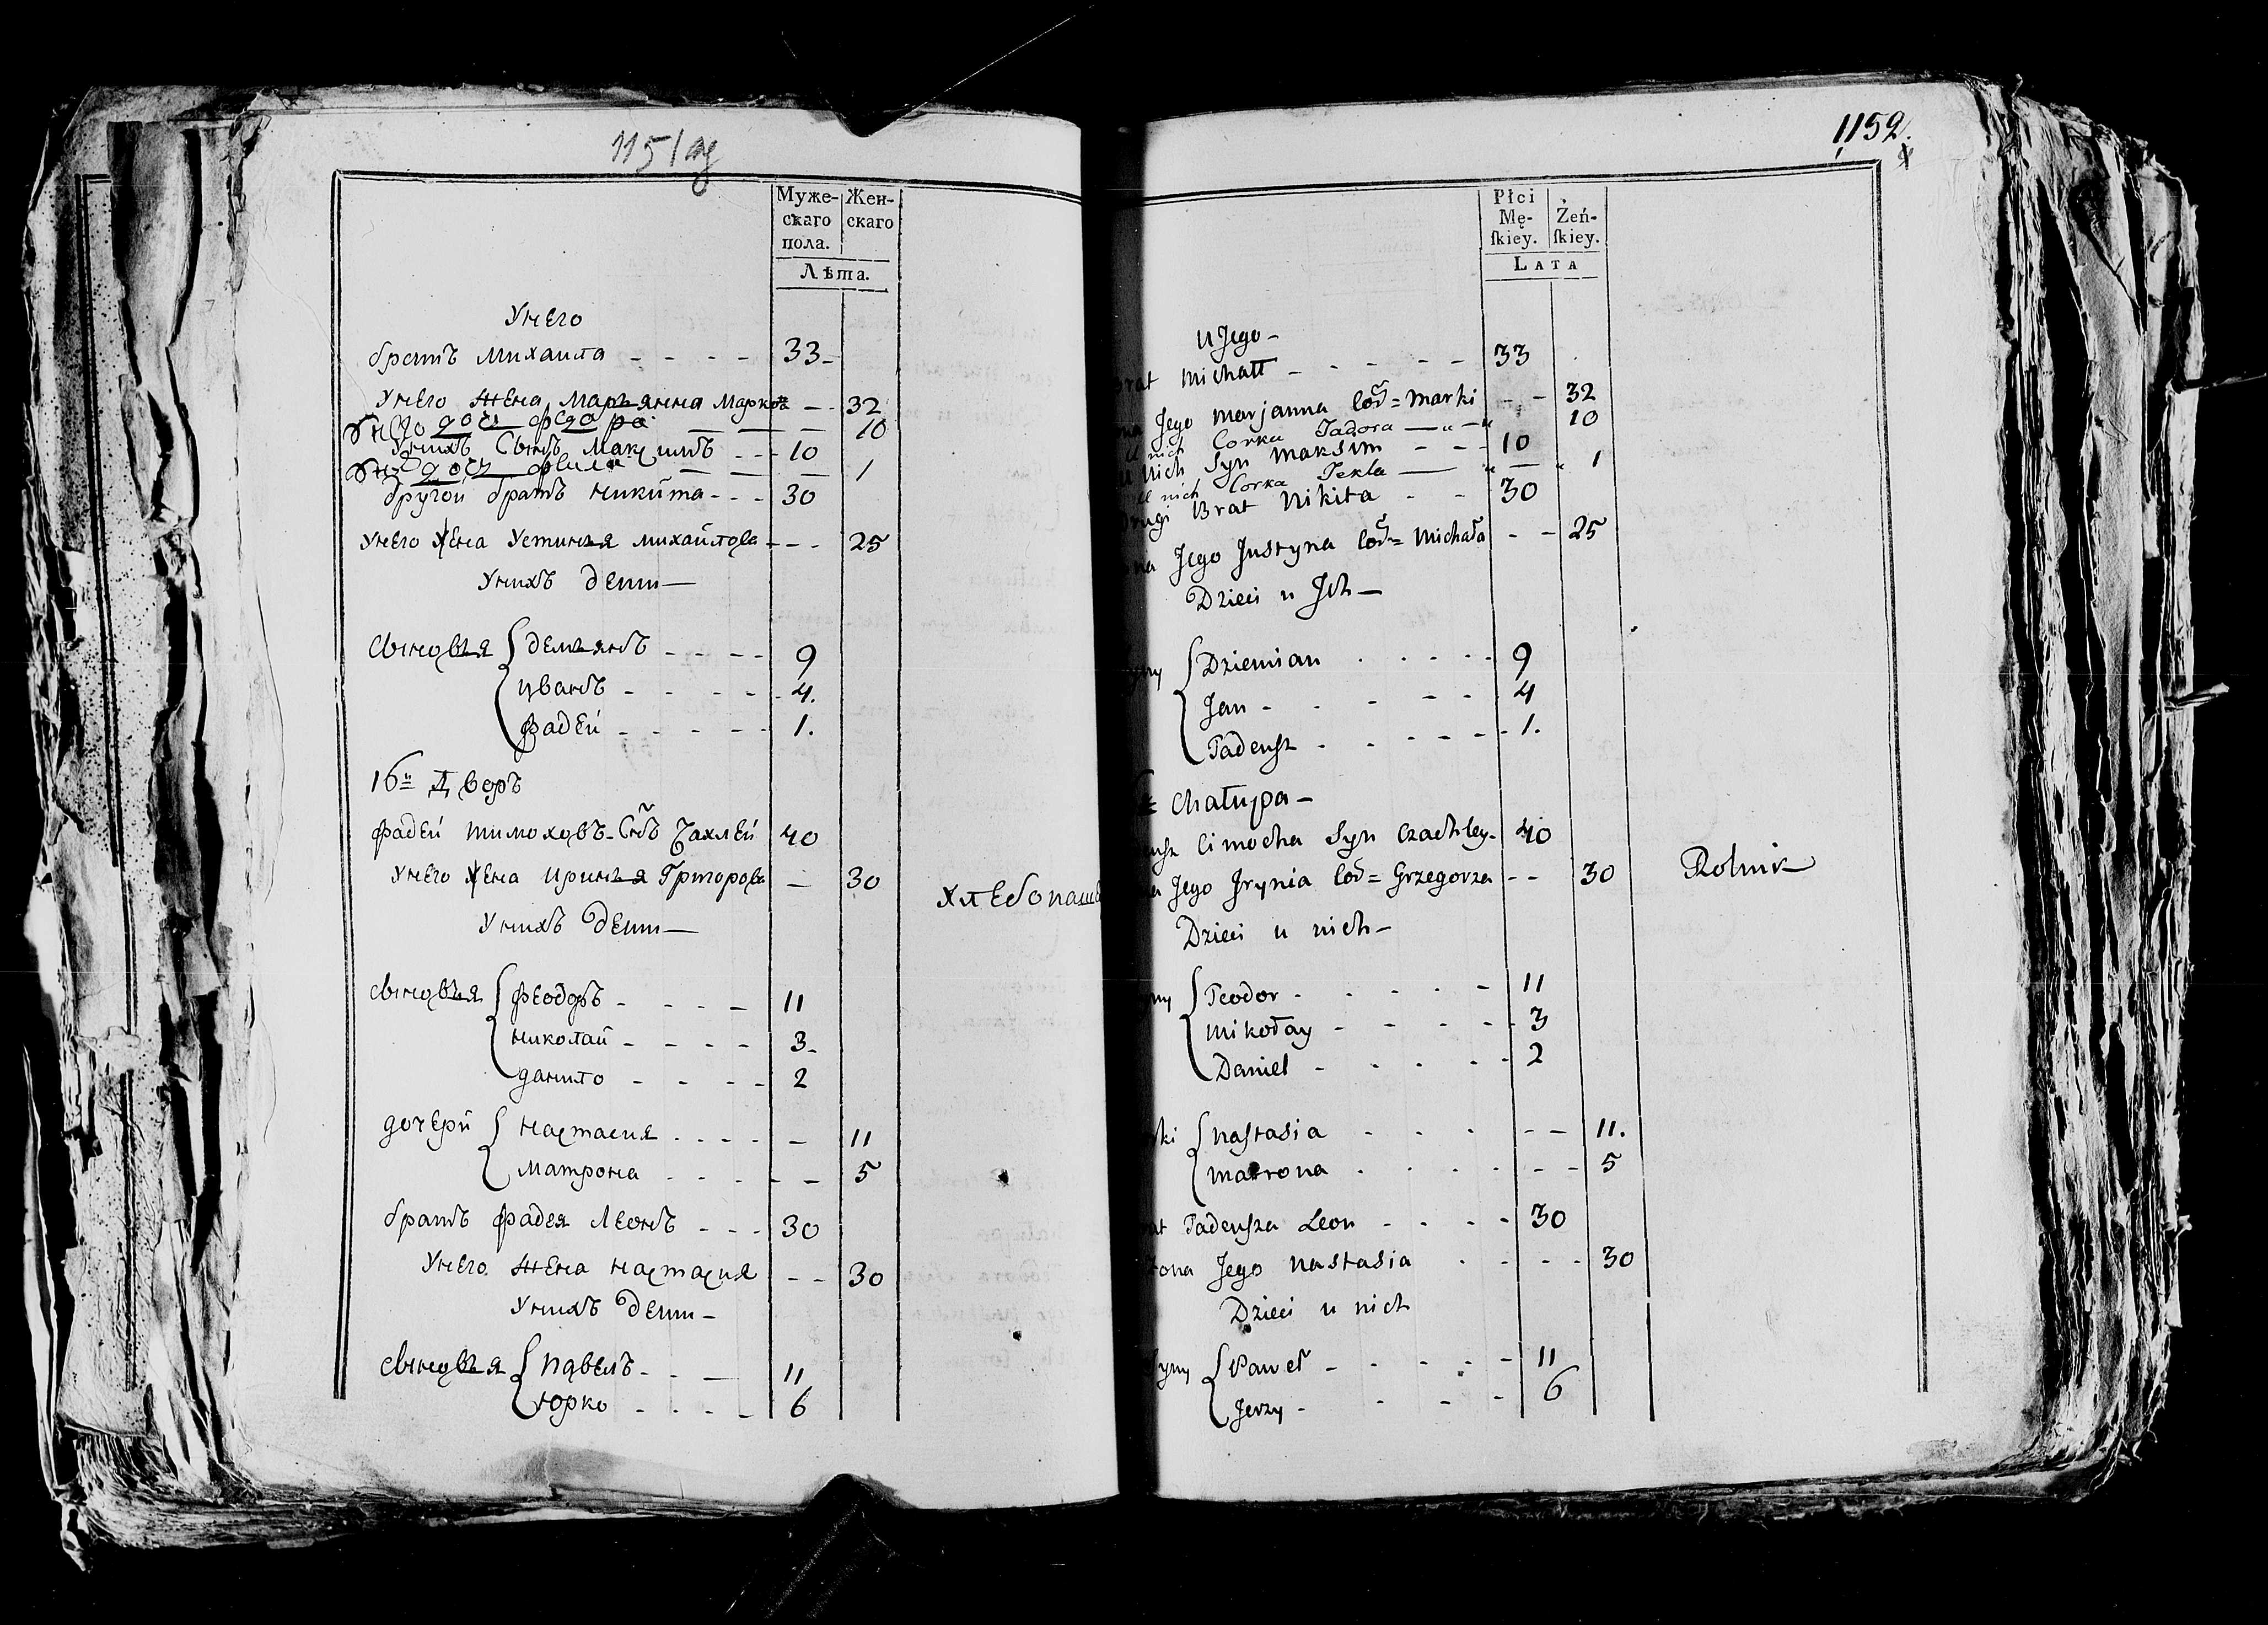 1151 об
Муже-скаго пола. Жен-скаго
Лѣта.
У него
братъ Михаила - - - - 33
У него жена Марьянна Маркова - - 32
У него дочь Федора — — — 10
У нихъ Сынъ Максимъ - - - 10
дочь — — — 1
другой братъ Никита - - - 30
У него жена Устинья Михайлова - - - 25
У нихъ дети —
Сыновья { демьянъ - - - - 9
Иванъ - - - - - 4.
Фадей - - - - - 1.
16й Дворъ
Фадей Тимоховъ Снъ Чахлей 40
У него жена Иринья Григорова — 30
Хлебопаш
У нихъ дети —
Сыновья { Феодоръ - - - - 11
Николай - - - - 3
данило - - - - 2
дочери { Настасия - - - - — 11
Матрона - - - - - - 5
братъ Фадея Леонъ - - - 30
У него жена Настасия - - 30
У нихъ дети —
Сыновья { Павелъ - - — 11
Юрко - - - - 6
1152.
Płci Mę-ſkiey. Żeń-ſkiey.
LATA
u Jego -
rat Michał - - - - - 33
na Jego Marjanna Cor= Marki - - 32
u nich Corka Tadora — " — " 10
u nich Syn Maksim - - - 10
u nich Corka Tekla — " — " 1
rugi Brat Nikita - - 30
na Jego Justyna Cor= Michała - - 25
Dzieci u Jch —
yny { Dziemian - - - - - 9
Jan - - - - - 4
Tadeuſz - - - - - - 1.
Chałupa —
uſz Cimocha Syn Czachley - 40
a Jego Jrynia Cor= Grzegorza - - 30
Rolnik
Dzieci u nich —
ny { Teodor - - - - - 11
Mikołay - - - - - 3
Daniel - - - - - 2
ki { Naſtasia - - - - - 11.
Matrona - - - - - - 5
at Tadeuſza Leon - - - - 30
żona Jego Nastasia - - - - 30
Dzieci u nich
Syny { Paweł - - - - - 11
Jerzy - - - - 6